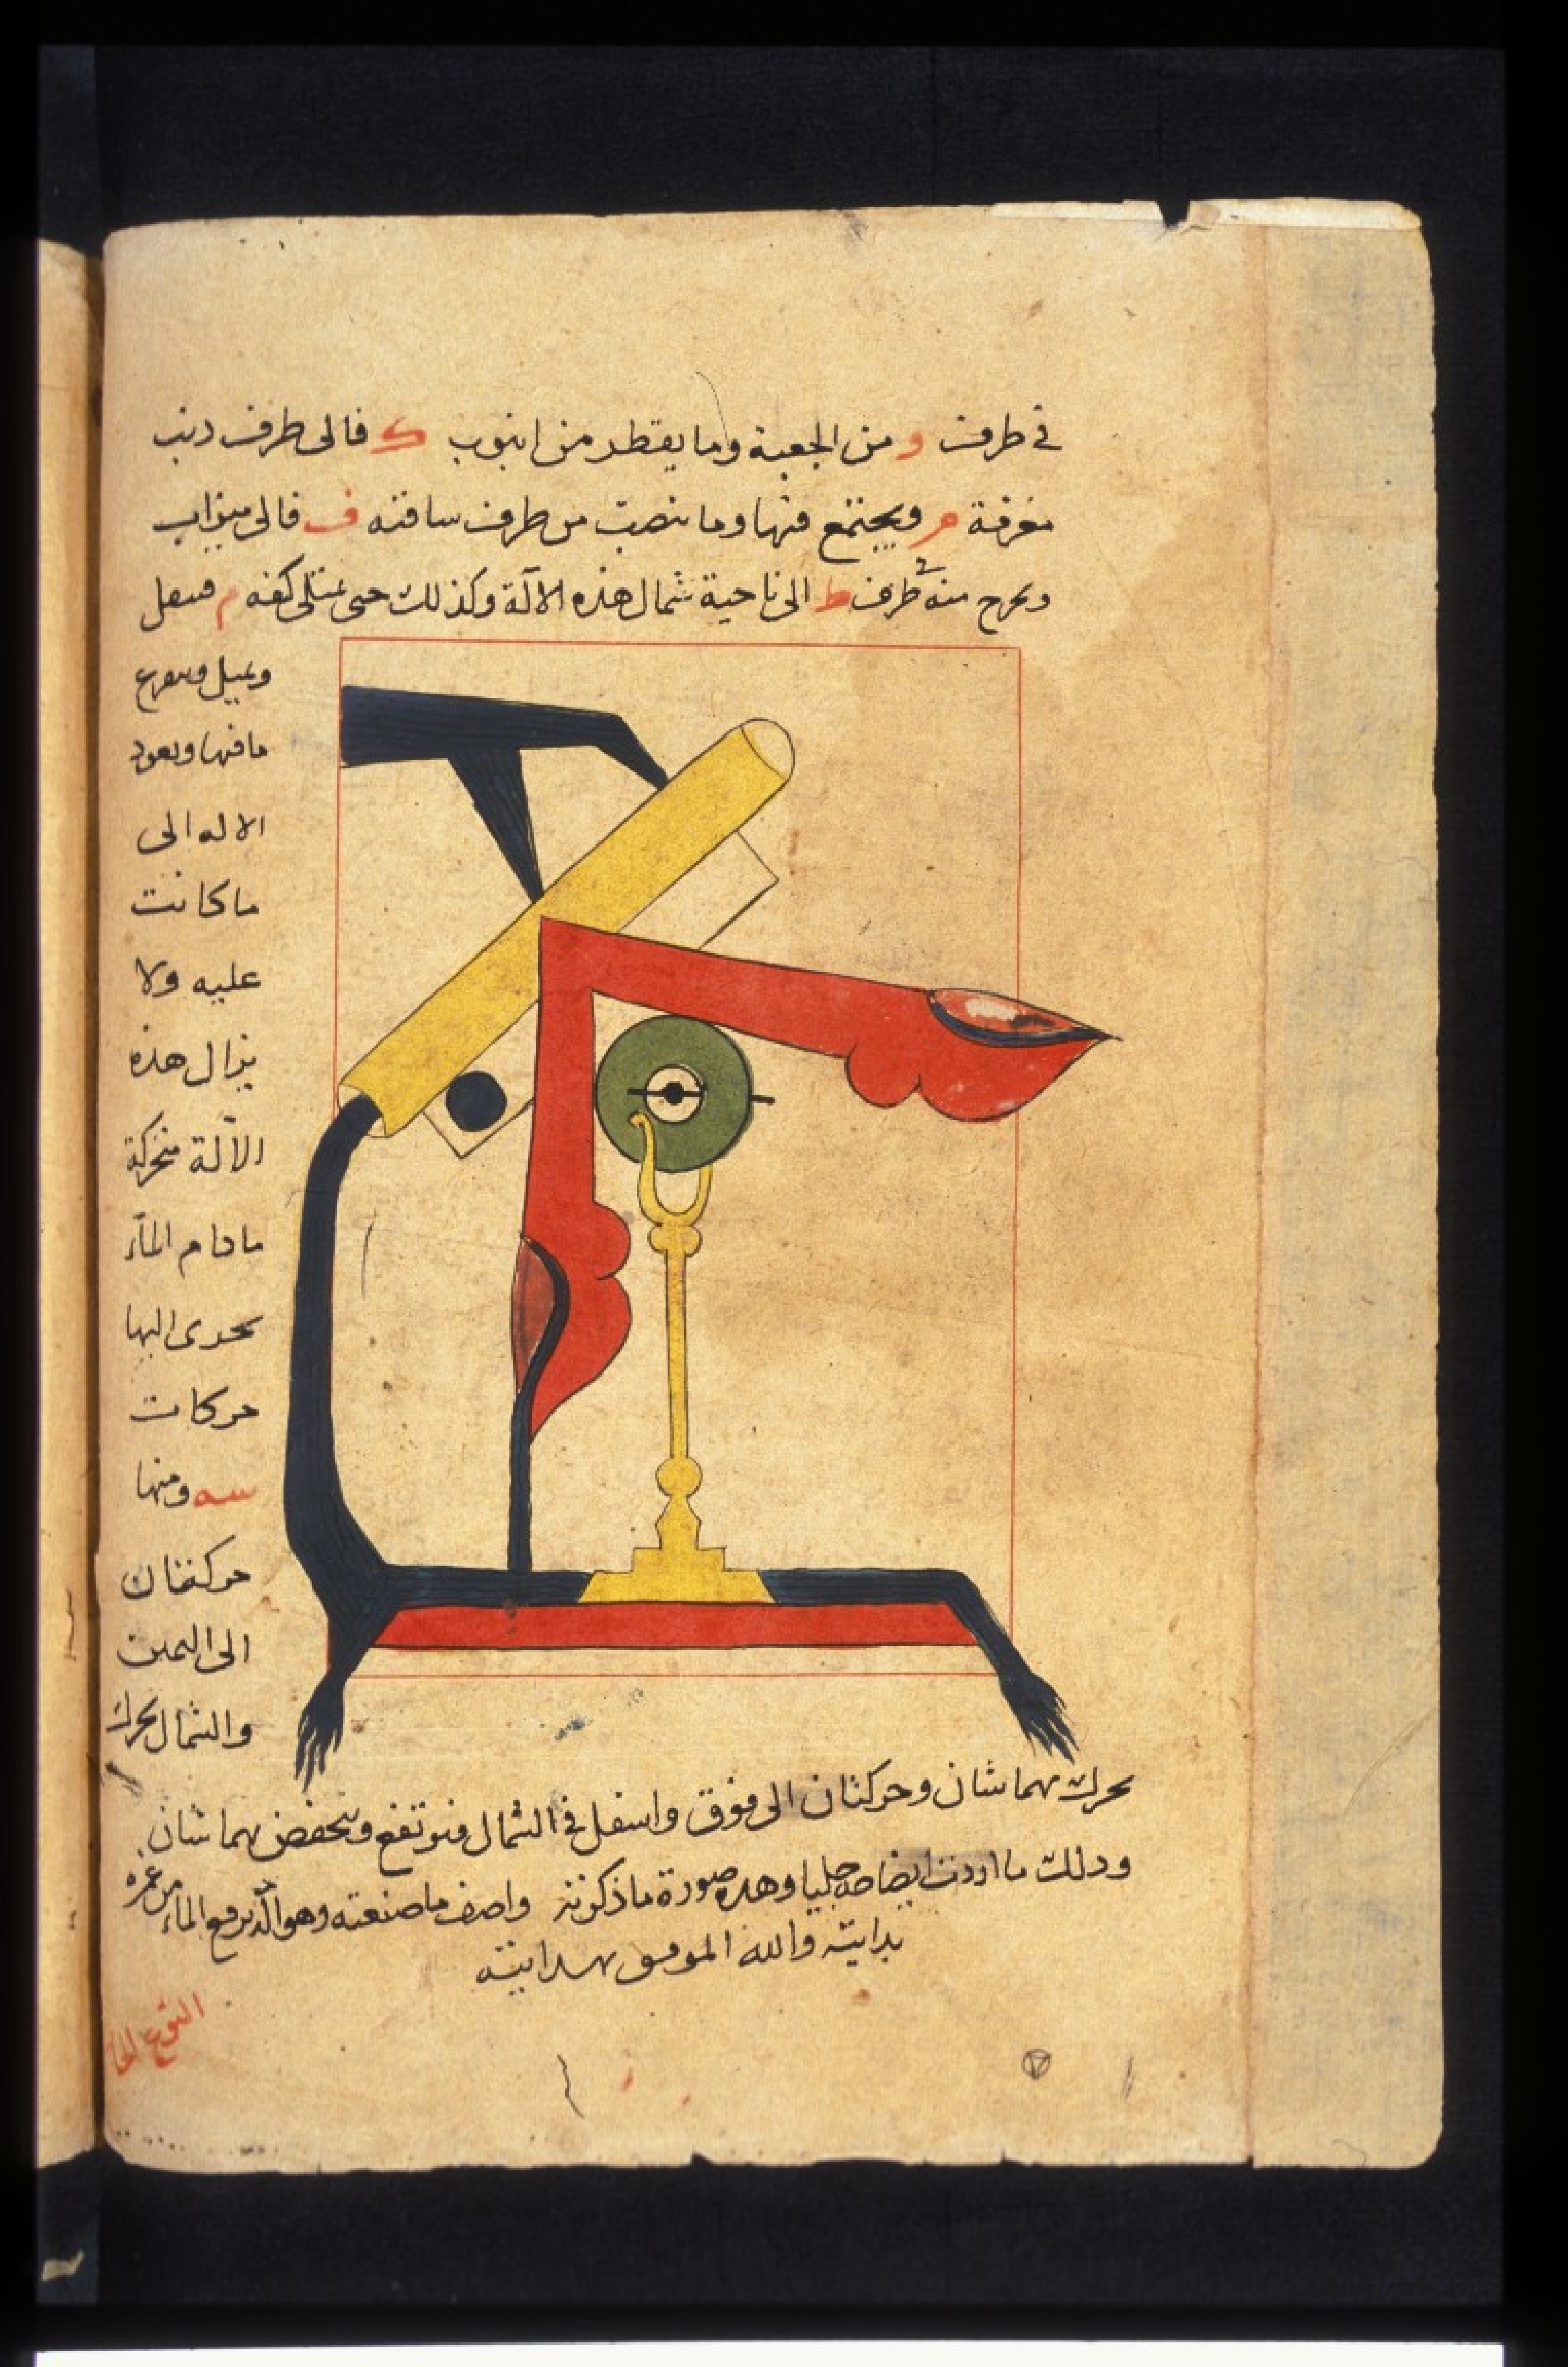 في طرف و من الجعبة وما يقطر من انبوب ك فالى طرف ذنب
مغرفة م ويجتمع فيها وما ينصب من طرف ساقته ف فالى ميزاب
ويخرج منه طرف ط الى ناحية شمال هذه الآلة وكذلك حتى تمتلى كفه م فتثقل
وتميل ويتفرغ
ما فيها وتعود
الاله الى
ما كانت
عليه ولا
يزال هذه
الآلة متحركة
ما دام المآء
يجرى اليها
حركات
ومنها
حركتان
الى اليمين
والشمال يحرك
يحرك بهما شان وحركتان الى فوق واسفل في الشمال فترتفع وينخفض بهما شان
وذلك ما اردت ايضاحه جليا وهذه صورة ما ذكرته واصف ما صنعته وهو الة ترفع الماء من غمرة
بدايته والله الموفق بهدايته
النوع